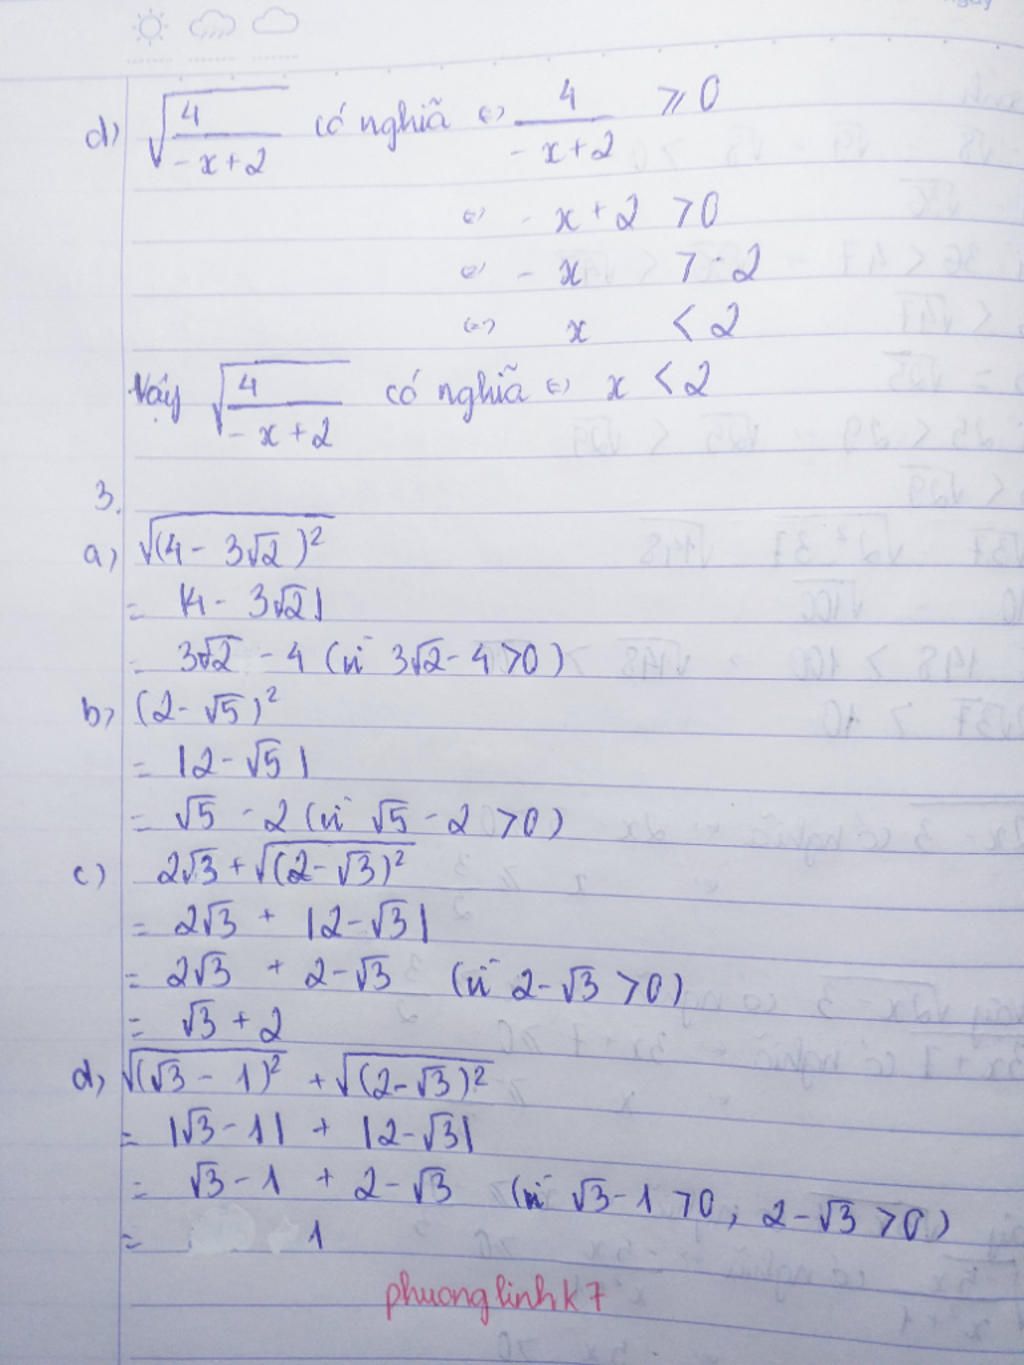 d) √(4/(-x+2)) có nghĩa ⇔ 4/(-x+2) ⩾ 0
⇔ -x+2 > 0
⇔ -x > -2
⇔ x < 2
Vậy √(4/(-x+2)) có nghĩa ⇔ x < 2
3.
a) √((4 - 3√2)²)
= |4 - 3√2|
= 3√2 - 4 (vì 3√2 - 4 > 0)
b) (2 - √5)²
= |2 - √5|
= √5 - 2 (vì √5 - 2 > 0)
c) 2√3 + √((2 - √3)²)
= 2√3 + |2 - √3|
= 2√3 + 2 - √3 (vì 2 - √3 > 0)
= √3 + 2
d) √((√3 - 1)²) + √((2 - √3)²)
= |√3 - 1| + |2 - √3|
= √3 - 1 + 2 - √3 (vì √3 - 1 > 0, 2 - √3 > 0)
= 1
phuonglinhk7